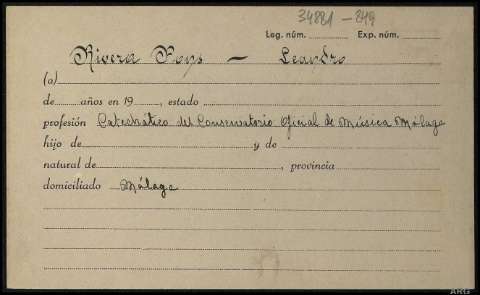 34881-849
Leg. núm. Exp. núm.
Rivera Pons — Leandro
(a)
de años en 19 , estado
profesión Catedrático del Conservatorio Oficial de Música Málaga
hijo de y de
natural de , provincia
domiciliado Málaga
ARG